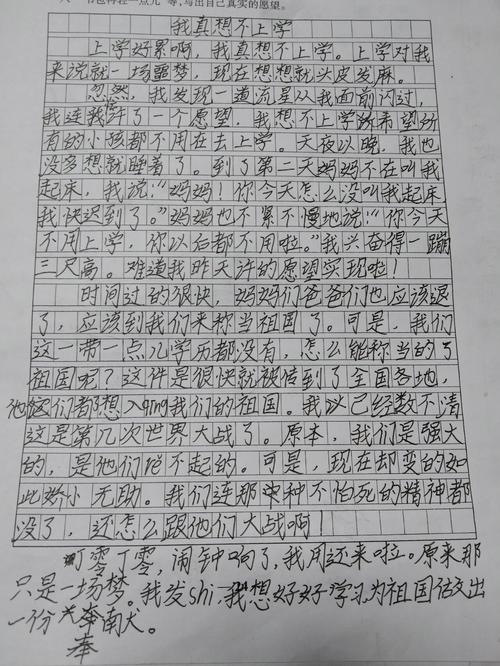 书包再轻一点儿"等,写出自己真实的愿望。
我真想不上学
上学好累啊,我真想不上学。上学对我
来说就一场噩梦,现在想想就头皮发麻。
忽然,我发现一道流星从我面前闪过,
我连我许了一个愿望,我想不上学希望所
有的小孩都不用在去上学。天夜以晚,我也
没多想就睡着了。到了第二天妈妈不在叫我
起床,我说:"妈妈!你今天怎么没叫我起床
我快迟到了。"妈妈也不紧不慢地说:"你今天
不用上学,你以后都不用啦。"我兴奋得一蹦
三尺高。难道我昨天许的愿望实现啦!
时间过的很快,妈妈们爸爸们也应该退
了,应该到我们来称当祖国了。可是,我们
这一带一点儿学历都没有,怎么能称当的了
祖国呢?这件是很快就被传到了全国各地,
他们都想入qing我们的祖国。我以已经数不清
这是第几次世界大战了。原本,我们是强大
的,是他们惹不起的。可是,现在却变的如
此娇小无助。我们连那种不怕死的精神都
没了,还怎么跟他们大战啊!
叮零丁零,闹钟响了,我用还来啦。原来那
只是一场梦。我发shi,我想好好学习,为祖国估文出
一份大奉南大。
奉